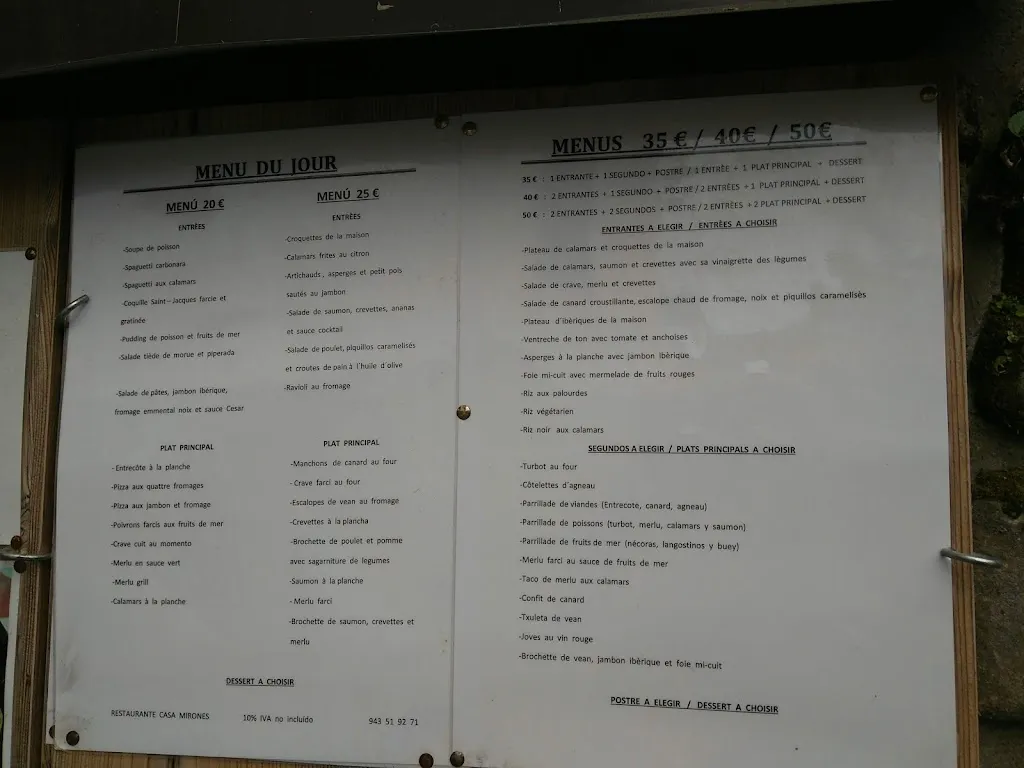 MENU DU JOUR
MENÚ 20 €
ENTRÈES
-Soupe de poisson
-Spaguetti carbonara
-Spaguetti aux calamars
-Coquille Saint-Jacques farcie et
gratinée
-Pudding de poisson et fruits de mer
-Salade tiède de morue et piperada
-Salade de pâtes, jambon ibérique,
fromage emmental noix et sauce Cesar
PLAT PRINCIPAL
-Entrecôte à la planche
-Pizza aux quattre fromages
-Pizza aux jambon et fromage
-Poivrons farcis aux fruits de mer
-Crave cuit au momento
-Merlu en sauce vert
-Merlu grill
-Calamars à la planche
MENÚ 25 €
ENTRÈES
-Croquettes de la maison
-Calamars frites au citron
-Artichauds, asperges et petit pois
sautés au jambon
-Salade de saumon, crevettes, ananas
et sauce cocktail
-Salade de poulet, piquillos caramelisés
et croutes de pain à l´huile d´olive
-Ravioli au fromage
PLAT PRINCIPAL
-Manchons de canard au four
-Crave farci au four
-Escalopes de vean au fromage
-Crevettes à la plancha
-Brochette de poulet et pomme
avec sagarniture de legumes
-Saumon à la planche
-Merlu farci
-Brochette de saumon, crevettes et
merlu
DESSERT A CHOISIR
RESTAURANTE CASA MIRONES 10% IVA no incluído 943 51 92 71
MENUS 35 € / 40€ / 50€
35 € : 1 ENTRANTE + 1 SEGUNDO + POSTRE / 1 ENTRÈE + 1 PLAT PRINCIPAL + DESSERT
40 € : 2 ENTRANTES + 1 SEGUNDO + POSTRE / 2 ENTRÈES + 1 PLAT PRINCIPAL + DESSERT
50 € : 2 ENTRANTES + 2 SEGUNDOS + POSTRE / 2 ENTRÈES + 2 PLAT PRINCIPAL + DESSERT
ENTRANTES A ELEGIR / ENTRÈES A CHOISIR
-Plateau de calamars et croquettes de la maison
-Salade de calamars, saumon et crevettes avec sa vinaigrette des lègumes
-Salade de crave, merlu et crevettes
-Salade de canard croustillante, escalope chaud de fromage, noix et piquillos caramelisès
-Plateau d´ibèriques de la maison
-Ventreche de ton avec tomate et anchoises
-Asperges à la planche avec jambon ibèrique
-Foie mi-cuit avec mermelade de fruits rouges
-Riz aux palourdes
-Riz végétarien
-Riz noir aux calamars
SEGUNDOS A ELEGIR / PLATS PRINCIPALS A CHOISIR
-Turbot au four
-Côtelettes d´agneau
-Parrillade de viandes (Entrecote, canard, agneau)
-Parrillade de poissons (turbot, merlu, calamars y saumon)
-Parrillade de fruits de mer (nécoras, langostinos y buey)
-Merlu farci au sauce de fruits de mer
-Taco de merlu aux calamars
-Confit de canard
-Txuleta de vean
-Joves au vin rouge
-Brochette de vean, jambon ibèrique et foie mi-cuit
POSTRE A ELEGIR / DESSERT A CHOISIR